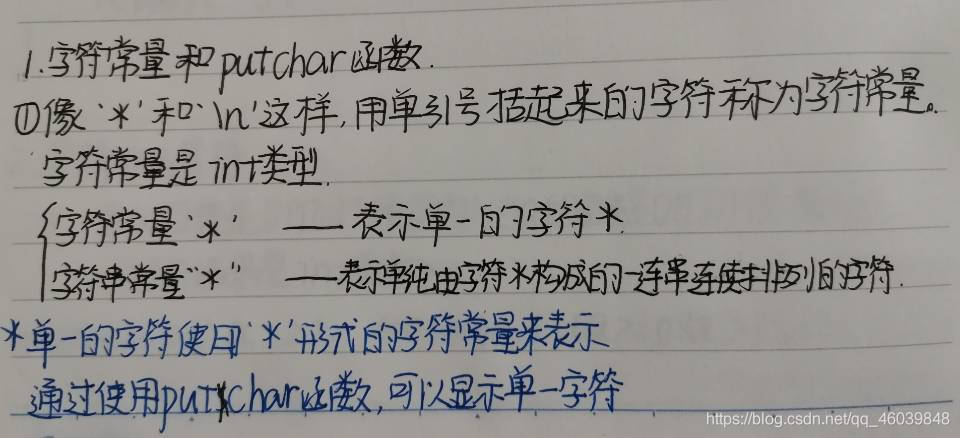 1.字符常量和putchar函数.
①像'*'和'\n'这样,用单引号括起来的字符称为字符常量。
字符常量是int类型.
字符常量'*' ——表示单一的字符*.
字符串常量"*" ——表示单纯由字符*构成的一连串连续排列的字符.
*单一的字符使用'*'形式的字符常量来表示
通过使用putchar函数,可以显示单一字符
https://blog.csdn.net/qq_46039848